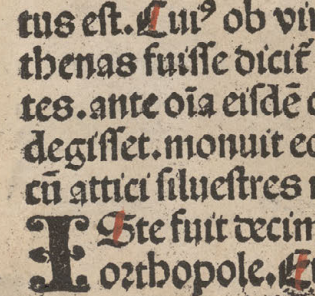 tus eſt. Cuiꝰ ob vir
thenas fuiſſe dicit̃
tes. ante oĩa eiſdẽ
degiſſet. monuit
cũ attici ſilueſtres
ISte fuit decim
orthopole.